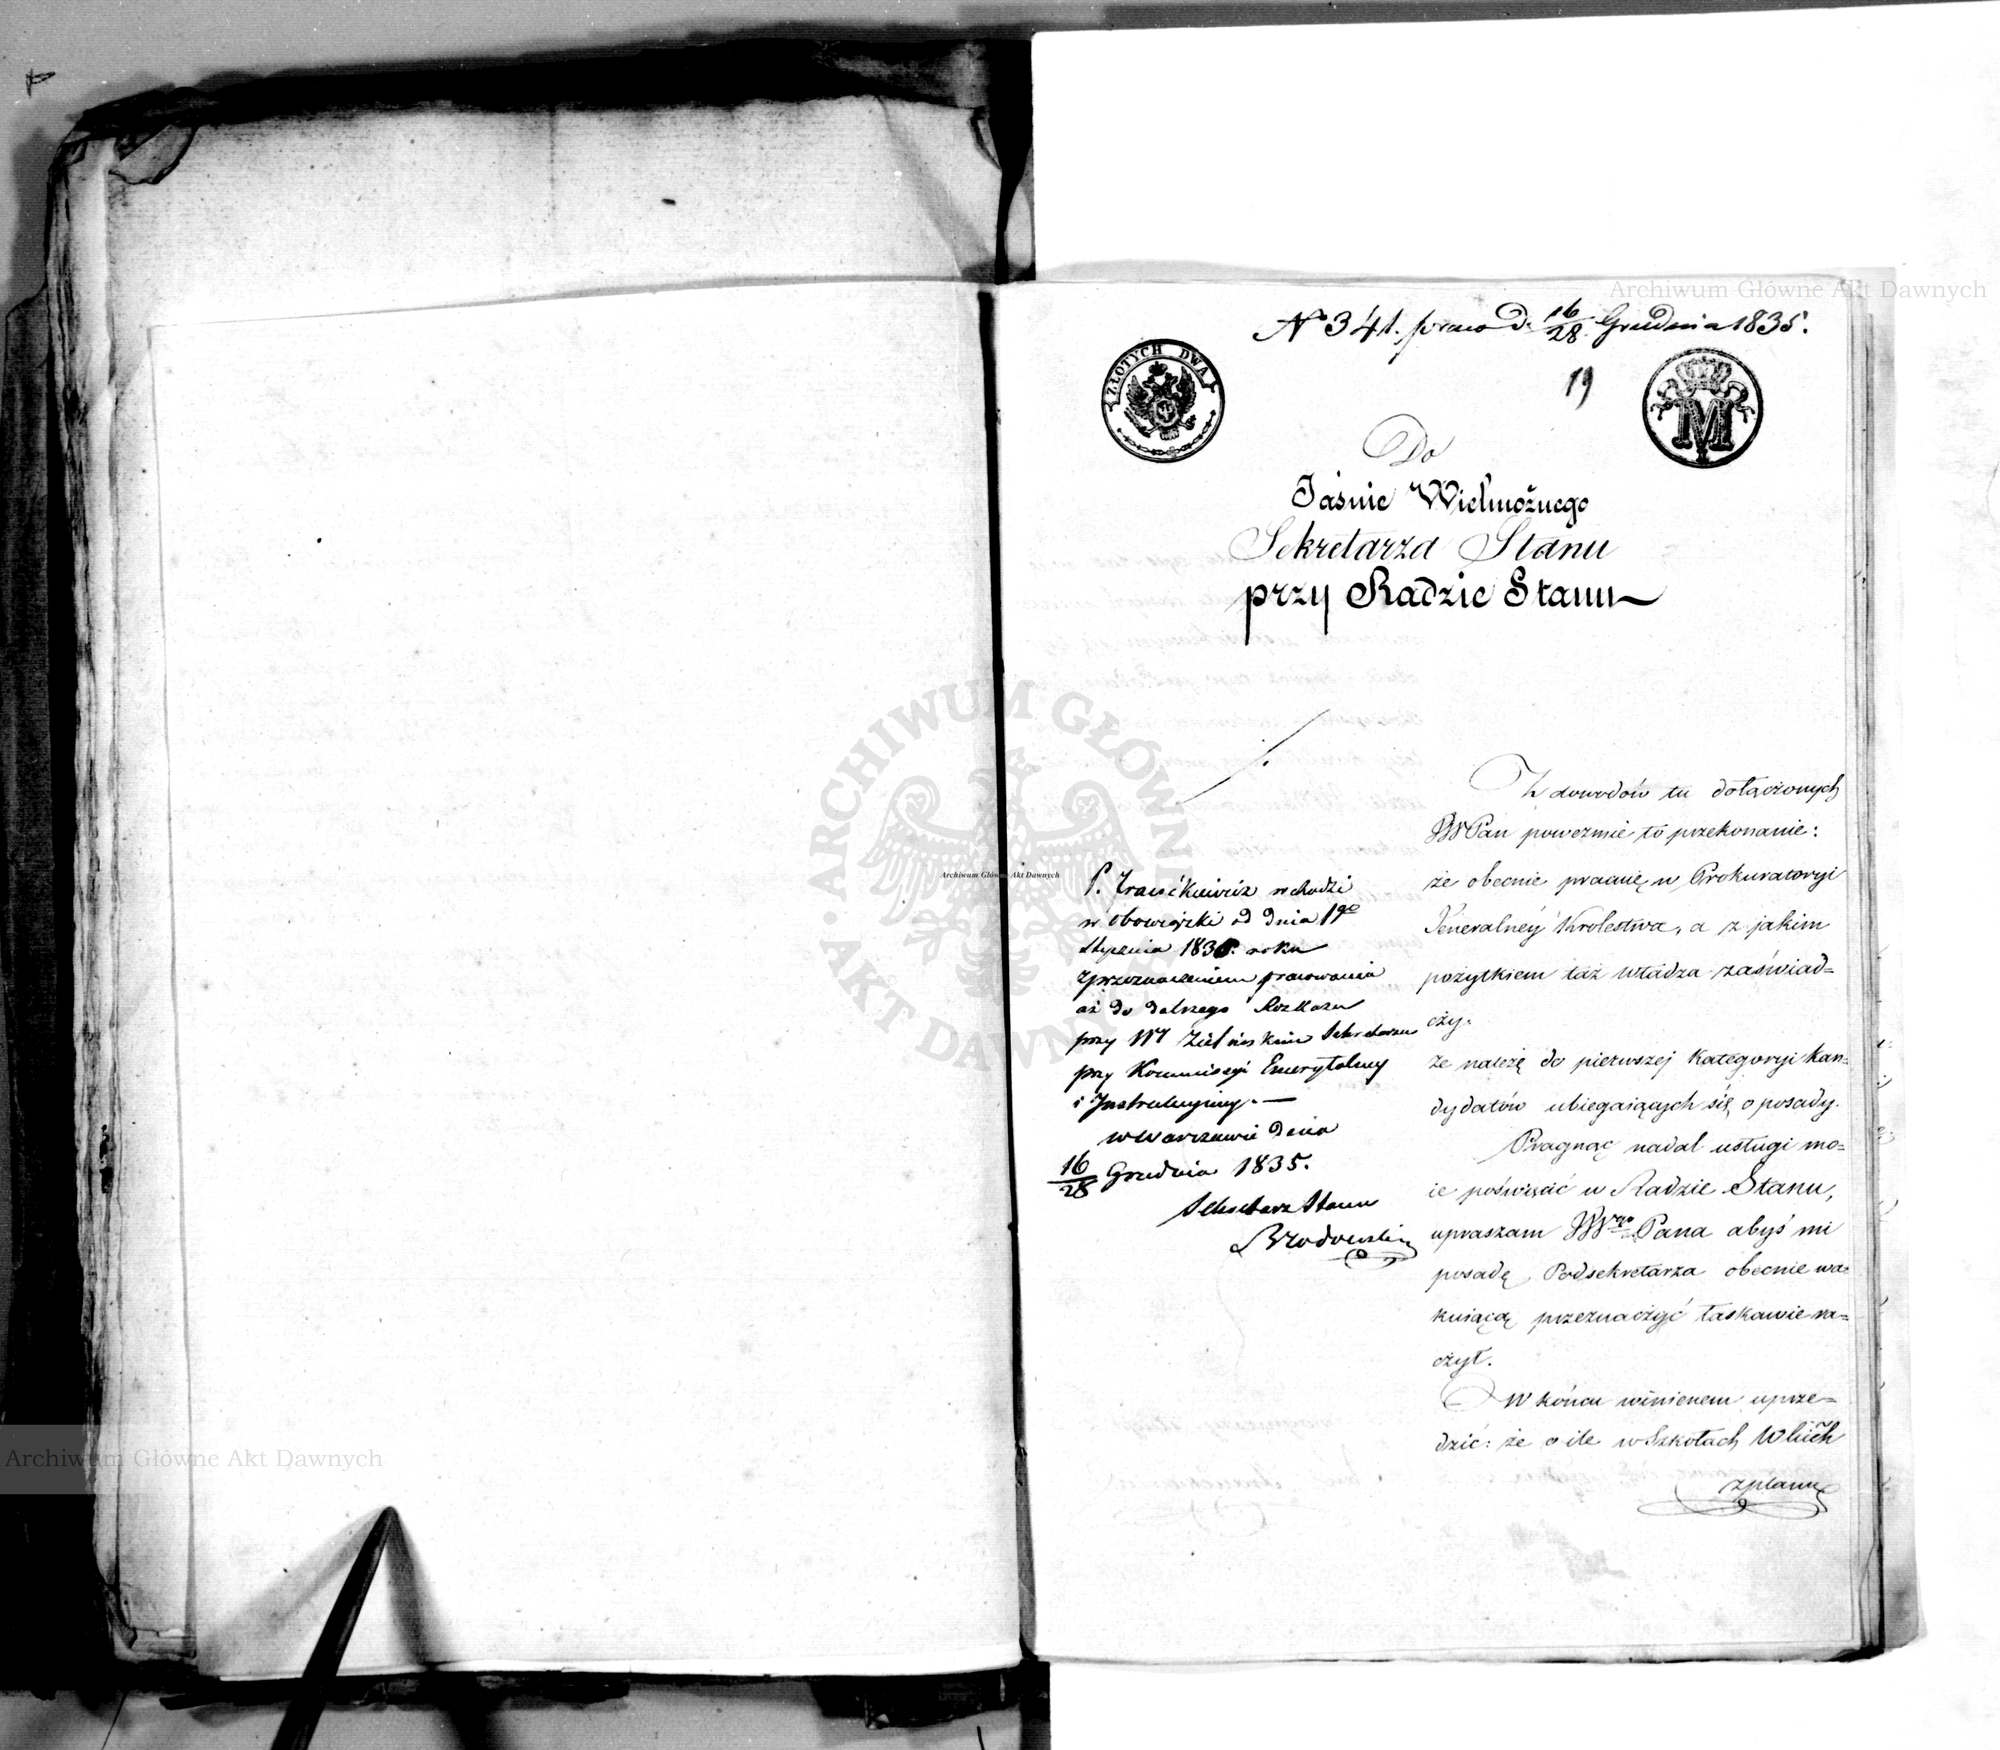 Archiwum Główne Akt Dawnych
№ 341. prae d. 16/28 Grudnia 1835.
ZŁOTYCH DWA
19
M
Do
Jaśnie Wielmożnego
Sekretarza Stanu
przy Radzie Stanu
Z dowodów tu dołączonych
JW Pan powezmie to przekonanie:
że obecnie pracuię w Prokuratoryi
Jeneralnéy Krolestwa, a z jakim
pożytkiem taż władza zaświad=
czy.
że należę do pierwszej Kategoryi kan=
dydatów ubiegaiących się o posady.
Pragnąc nadal usługi mo=
ie poświęcić w Radzie Stanu,
upraszam JWgo Pana abyś mi
posadę Podsekretarza obecnie wa=
kuiącą przeznaczyć łaskawie ra=
czył.
W końcu winienem uprze=
dzić: że o ile w Szkołach
z planu
P. wchodzi
w obowiązki od dnia 1go
Stycznia 1836. roku
z przeznaczeniem pracowania
aż do dalszego Rozkazu
przy WJ Zielińskim Sekretarzu
przy Kommissyi Emerytalney
i Instrukcyiney.—
w Warszawie dnia
16/28 Grudnia 1835.
Sekretarz Stanu
Brodowski
ARCHIWUM GŁÓWNE AKT DAWNYCH
Archiwum Główne Akt Dawnych
Archiwum Główne Akt Dawnych